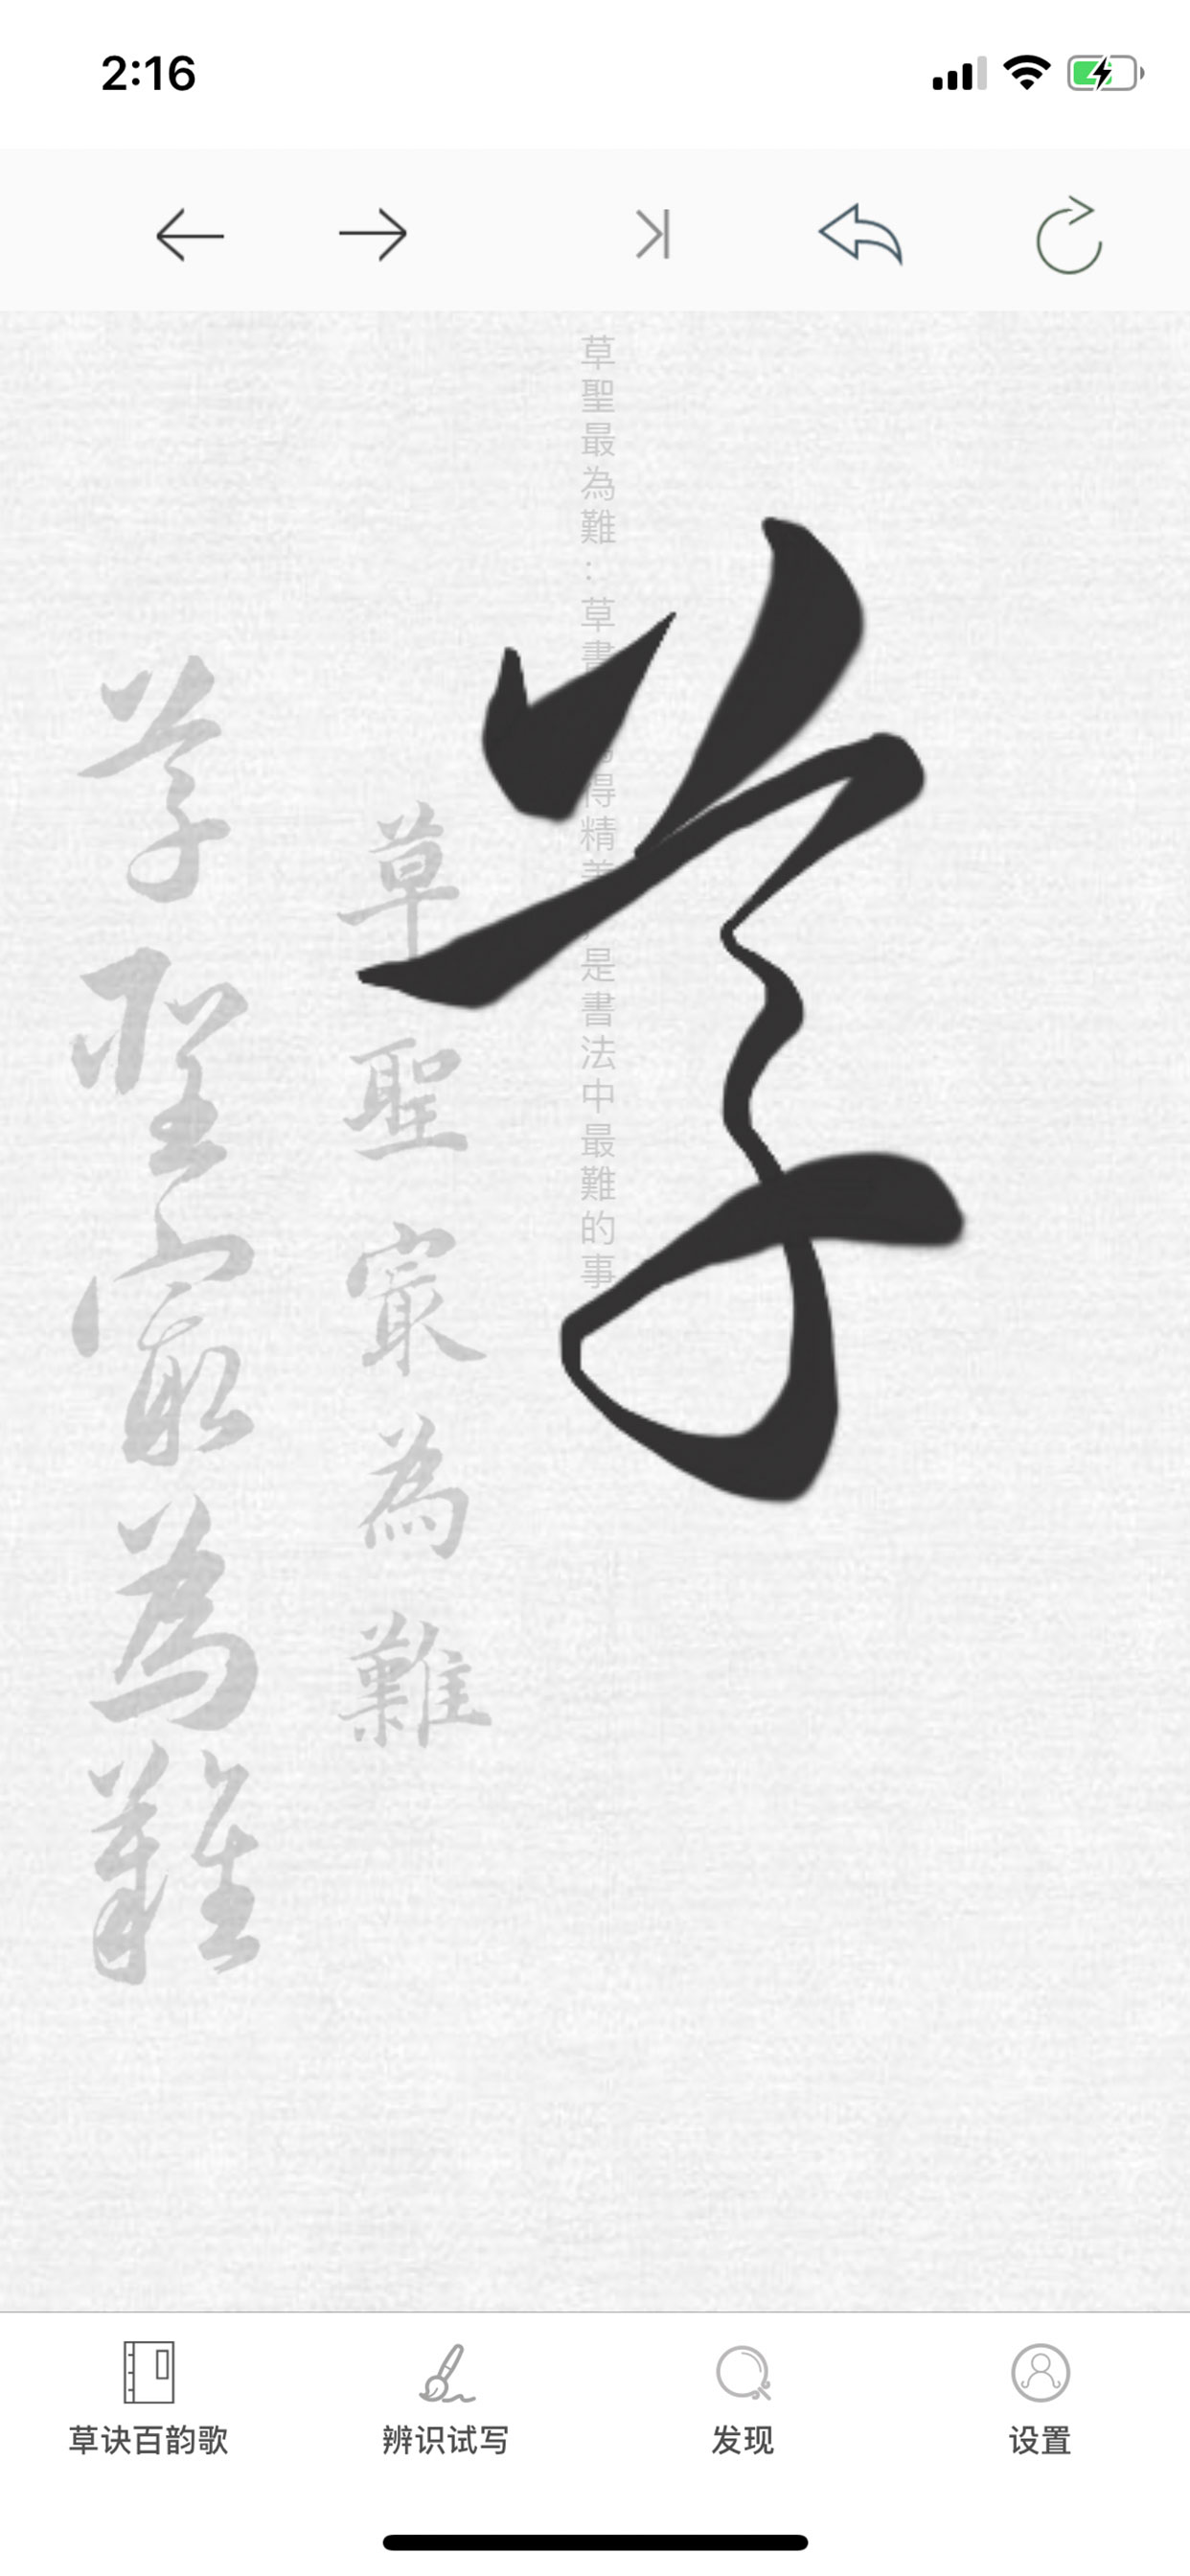 2:16
草
草聖最為難：草書
得精美
是書法中最難的事
草聖最為難
草聖最為難
草诀百韵歌
辨识试写
发现
设置